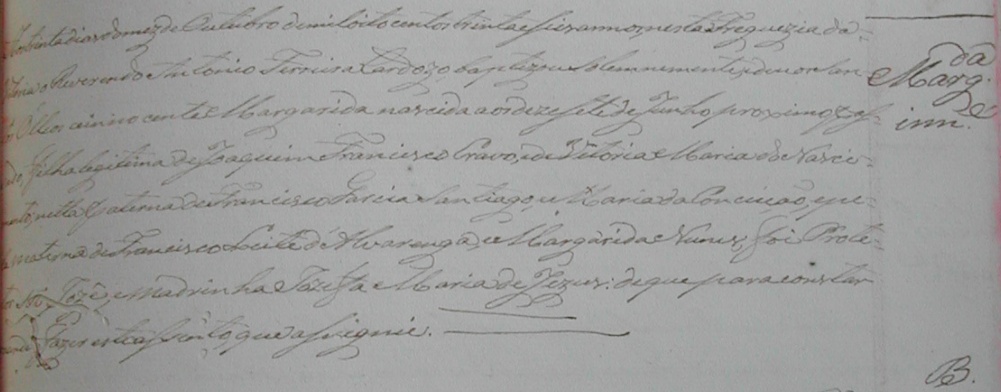 Aos trinta dias do mez de Outubro de mil oito centos trinta e seis annos nesta Freguezia da
o Reverendo Antonio Ferreira Cardozo baptizou solemnemente e poz os San
Oleos a innocente Margarida nascida aos dezesete de Junho proximo pas-
filha legitima de Joaquim Francisco Cravo, e de Vitoria Maria do Nasci-
mento, netta paterna de Francisco Garcia Santiago, e Maria da Conceição, e pe-
la materna de Francisco Leite d'Alvarenga e Margarida Nunes, foi Prote-
Jozé, e madrinha Jozefa Maria de Jezus: de que para constar
Fazer este assento, que assignei.
da
Marg.
de
inn.
B.